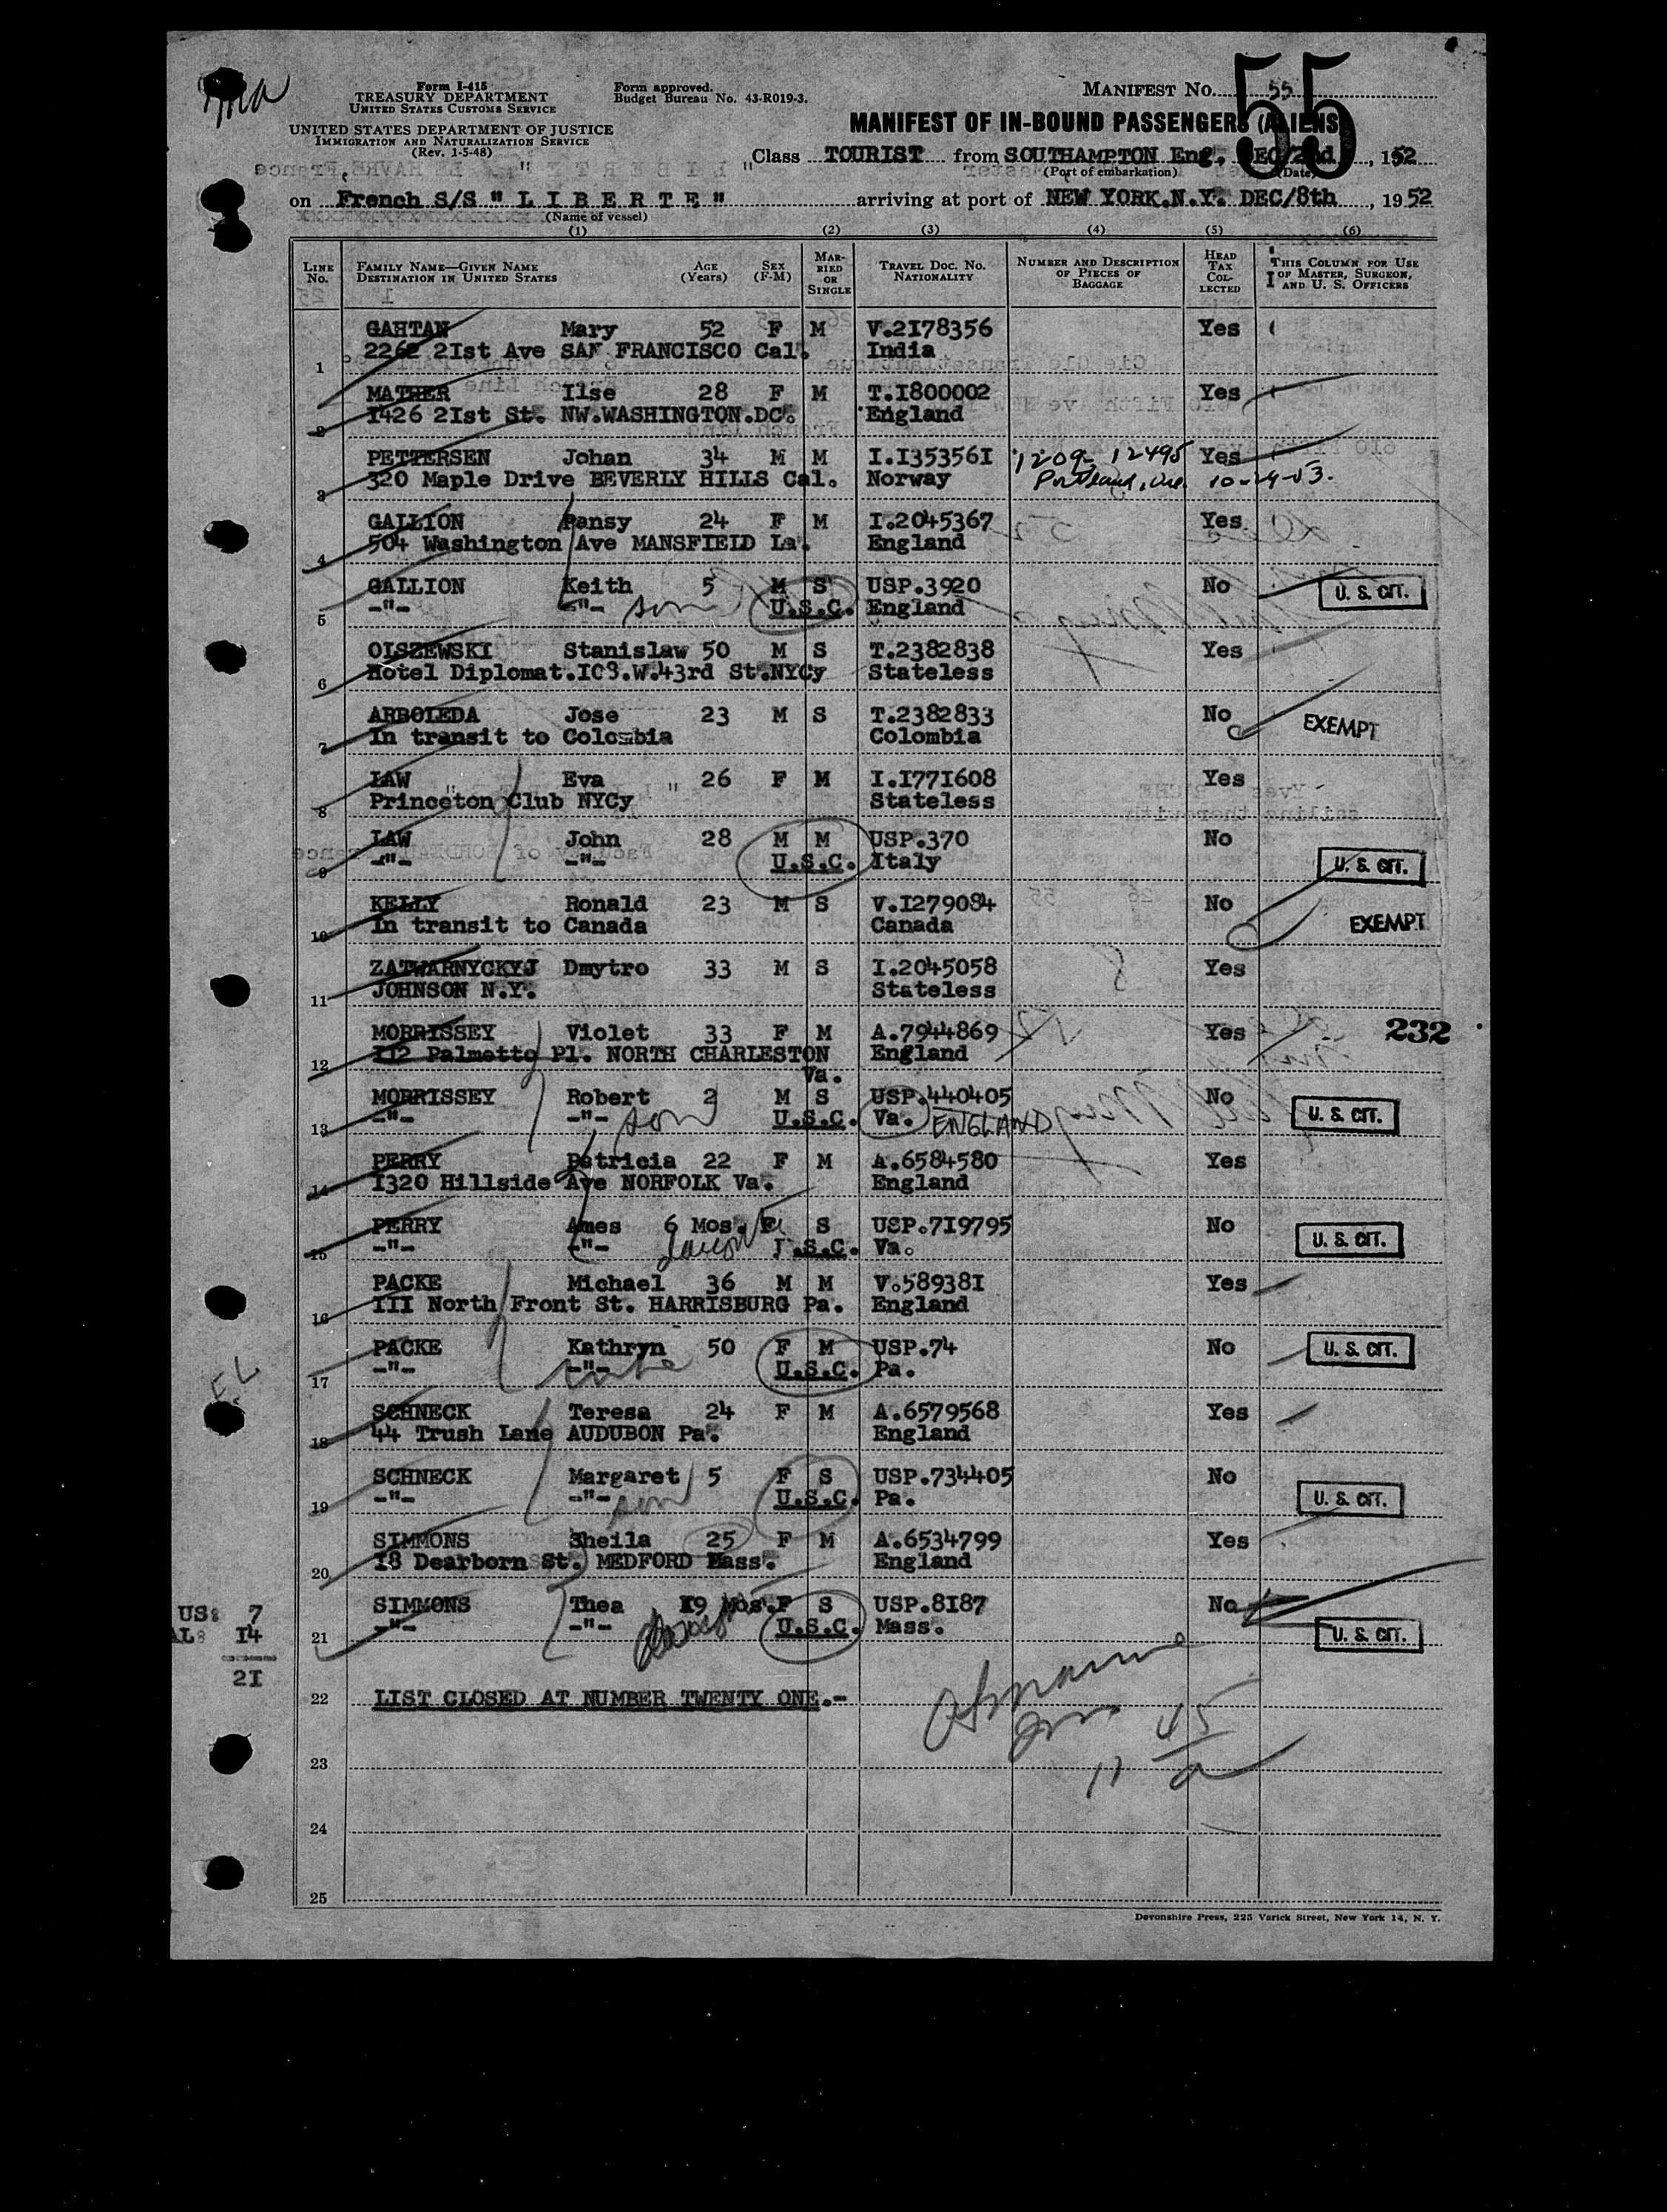 Form I-415
TREASURY DEPARTMENT
UNITED STATES CUSTOMS SERVICE
Form approved.
Budget Bureau No. 43-R019-3.
MANIFEST No. 55
55
UNITED STATES DEPARTMENT OF JUSTICE
IMMIGRATION AND NATURALIZATION SERVICE
(Rev. 1-5-48)
MANIFEST OF IN-BOUND PASSENGERS (ALIENS)
Class TOURIST from SOUTHAMPTON Eng. DEC/2nd, 1952
(Port of embarkation) (Date)
on French S/S " L I B E R T E " arriving at port of NEW YORK.N.Y. DEC/8th, 1952
(Name of vessel)
(1) (2) (3) (4) (5) (6)
LINE No. FAMILY NAME—GIVEN NAME DESTINATION IN UNITED STATES AGE (Years) SEX (F-M) MARRIED OR SINGLE TRAVEL DOC. NO. NATIONALITY NUMBER AND DESCRIPTION OF PIECES OF BAGGAGE HEAD TAX COLLECTED THIS COLUMN FOR USE OF MASTER, SURGEON, AND U. S. OFFICERS
GAHTAN Mary 52 F M V.2178356 Yes
1 2262 2Ist Ave SAN FRANCISCO Cal. India
MATHER Ilse 28 F M T.I800002 Yes
2 I426 2Ist St. NW.WASHINGTON.DC. England
PETTERSEN Johan 34 M M I.I35356I 1209-12495 Yes
3 320 Maple Drive BEVERLY HILLS Cal. Norway Portland, Ore. 10-29-53.
GALLION Pansy 24 F M I.2045367 Yes
4 504 Washington Ave MANSFIELD La. England
GALLION Keith 5 M S USP.3920 No U. S. CIT.
5 -"- -"- son U.S.C. England
OLSZEWSKI Stanislaw 50 M S T.2382838 Yes
6 Hotel Diplomat.I08.W.43rd St.NYCy Stateless
ARBOLEDA Jose 23 M S T.2382833 No EXEMPT
7 In transit to Colombia Colombia
LAW Eva 26 F M I.I77I608 Yes
8 Princeton Club NYCy Stateless
LAW John 28 M M USP.370 No
9 -"- -"- U.S.C. Italy U. S. CIT.
KELLY Ronald 23 M S V.I279084 No
10 In transit to Canada Canada EXEMPT
ZATWARNYCKYJ Dmytro 33 M S I.2045058 Yes
11 JOHNSON N.Y. Stateless
MORRISSEY Violet 33 F M A.7944869 Yes 232
12 II2 Palmetto Pl. NORTH CHARLESTON England
Va.
MORRISSEY Robert 2 M S USP.440405 No
13 -"- -"- son U.S.C. Va. ENGLAND U. S. CIT.
PERRY Patricia 22 F M A.6584580 Yes
14 I320 Hillside Ave NORFOLK Va. England
PERRY Ames 6 Mos. F S USP.7I9795 No
15 -"- -"- U.S.C. Va. U. S. CIT.
PACKE Michael 36 M M V.58938I Yes
16 III North Front St. HARRISBURG Pa. England
PACKE Kathryn 50 F M USP.74 No U. S. CIT.
17 -"- -"- U.S.C. Pa.
SCHNECK Teresa 24 F M A.6579568 Yes
18 44 Trush Lane AUDUBON Pa. England
SCHNECK Margaret 5 F S USP.734405 No
19 -"- -"- son U.S.C. Pa. U. S. CIT.
SIMMONS Sheila 25 F M A.6534799 Yes
20 I8 Dearborn St. MEDFORD Mass. England
SIMMONS Thea I9 Mos. F S USP.8I87 No
21 -"- -"- U.S.C. Mass. U. S. CIT.
US: 7
AL: I4
2I
22 LIST CLOSED AT NUMBER TWENTY ONE.-
23
24
25
Devonshire Press, 225 Varick Street, New York 14, N. Y.